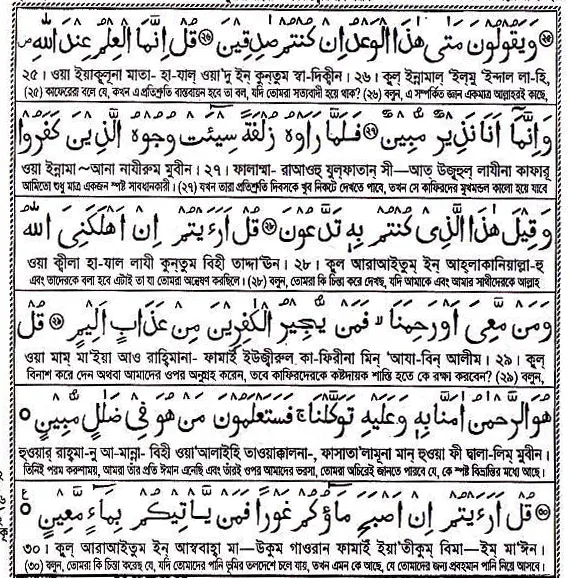 وَيَقُولُونَ مَتٰى هٰذَا الْوَعْدُ اِنْ كُنْتُمْ صٰدِقِيْنَ ۝ قُلْ اِنَّمَا الْعِلْمُ عِنْدَ اللّٰهِ
২৫। ওয়া ইয়াকূলূনা মাতা- হা-যাল্ ওয়া'দু ইন্ কুন্‌তুম্ স্বা-দিক্বীন। ২৬। কুল্ ইন্নামাল্ 'ইল্‌মু 'ইন্দাল লা-হি,
(২৫) কাফেরেরা বলে যে, কখন এ প্রতিশ্রুতি বাস্তবায়ন হবে তা বল, যদি তোমরা সত্যবাদী হয়ে থাক? (২৬) বলুন, এ সম্পর্কিত জ্ঞান একমাত্র আল্লাহরই কাছে,
وَاِنَّمَا اَنَا نَذِيْرٌ مُّبِيْنٌ ۝ فَلَمَّا رَاَوْهُ زُلْفَةً سِيْٓئَتْ وُجُوْهُ الَّذِيْنَ كَفَرُوْا
ওয়া ইন্নামা~আনা নাযীরুম মুবীন। ২৭। ফালাম্মা- রাআওহু যুল্‌ফাতান্ সী—আত্ উজূহুল্ লাযীনা কাফারূ
আমিতো শুধু মাত্র একজন স্পষ্ট সাবধানকারী। (২৭) যখন তারা প্রতিশ্রুতি দিবসকে খুব নিকটে দেখতে পাবে, তখন সে কাফিরদের মুখমন্ডল কালো হয়ে যাবে
وَقِيْلَ هٰذَا الَّذِيْ كُنْتُمْ بِهٖ تَدَّعُوْنَ ۝ قُلْ اَرَءَيْتُمْ اِنْ اَهْلَكَنِيَ اللّٰهُ
ওয়া ক্বীলা হা-যাল লাযী কুন্‌তুম বিহী তাদ্দা'ঊন। ২৮। কুল আরাআইতুম্ ইন্ আহ্‌লাকানিয়াল্লা-হু
এবং তাদেরকে বলা হবে এটাই তা যা তোমরা অন্বেষণ করছিলে। (২৮) বলুন, তোমরা কি চিন্তা করে দেখছ, যদি আমাকে এবং আমার সাথীদেরকে আল্লাহ
وَمَنْ مَّعِيَ اَوْ رَحِمَنَا ۙ فَمَنْ يُّجِيْرُ الْكٰفِرِيْنَ مِنْ عَذَابٍ اَلِيْمٍ ۝ قُلْ
ওয়া মাম্ মা'ইয়া আও রাহিমানা- ফামাই ইউজীরুল্ কা-ফিরীনা মিন্ 'আযা-বিন্ আলীম। ২৯। কুল্
বিনাশ করে দেন অথবা আমাদের ওপর অনুগ্রহ করেন, তবে কাফিরদেরকে কষ্টদায়ক শাস্তি হতে কে রক্ষা করবেন? (২৯) বলুন,
هُوَ الرَّحْمٰنُ اٰمَنَّا بِهٖ وَعَلَيْهِ تَوَكَّلْنَا ۚ فَسَتَعْلَمُوْنَ مَنْ هُوَ فِيْ ضَلٰلٍ مُّبِيْنٍ ۝
হুওয়ার্ রাহ্‌মা-নু আ-মান্না- বিহী ওয়া'আলাইহি তাওয়াক্কাল্‌না-, ফাসাতা'লামূনা মান্ হুওয়া ফী দ্বালা-লিম্ মুবীন।
তিনিই পরম করুণাময়, আমরা তাঁর প্রতি ঈমান এনেছি এবং তাঁরই ওপর আমাদের ভরসা, তোমরা অচিরেই জানতে পারবে যে, কে স্পষ্ট বিভ্রান্তির মধ্যে আছে।
قُلْ اَرَءَيْتُمْ اِنْ اَصْبَحَ مَآؤُكُمْ غَوْرًا فَمَنْ يَّاْتِيْكُمْ بِمَآءٍ مَّعِيْنٍ ۝
৩০। কুল্ আরাআইতুম ইন্ আস্ববাহা মা—উকুম গাওরান ফামাই ইয়া'তীকুম্ বিমা—ইম্ মা'ঈন।
(৩০) বলুন, তোমরা কি চিন্তা করেছ যে, যদি তোমাদের পানি ভূমির তলদেশে চলে যায়, তখন এমন কে আছে, যে তোমাদের জন্য প্রবহমান পানি নিয়ে আসবে।